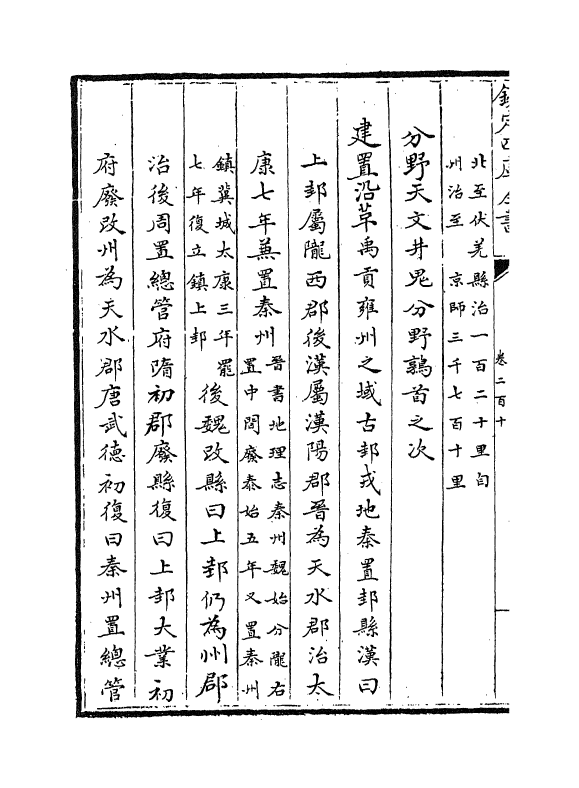 欽定四庫全書
卷二百十
北至伏羌縣治一百二十里自
州治至 京師三千七百十里
分野天文井鬼分野鶉首之次
建置沿革禹貢雍州之域古邽戎地秦置邽縣漢曰
上邽屬隴西郡後漢屬漢陽郡晉為天水郡治太
康七年兼置秦州
晉書地理志秦州魏始分隴右
置中間廢泰始五年又置秦州
鎮冀城太康三年罷
七年復立鎮上邽
後魏改縣曰上邽仍為州郡
治後周置總管府隋初郡廢縣復曰上邽大業初
府廢改州為天水郡唐武德初復曰秦州置總管